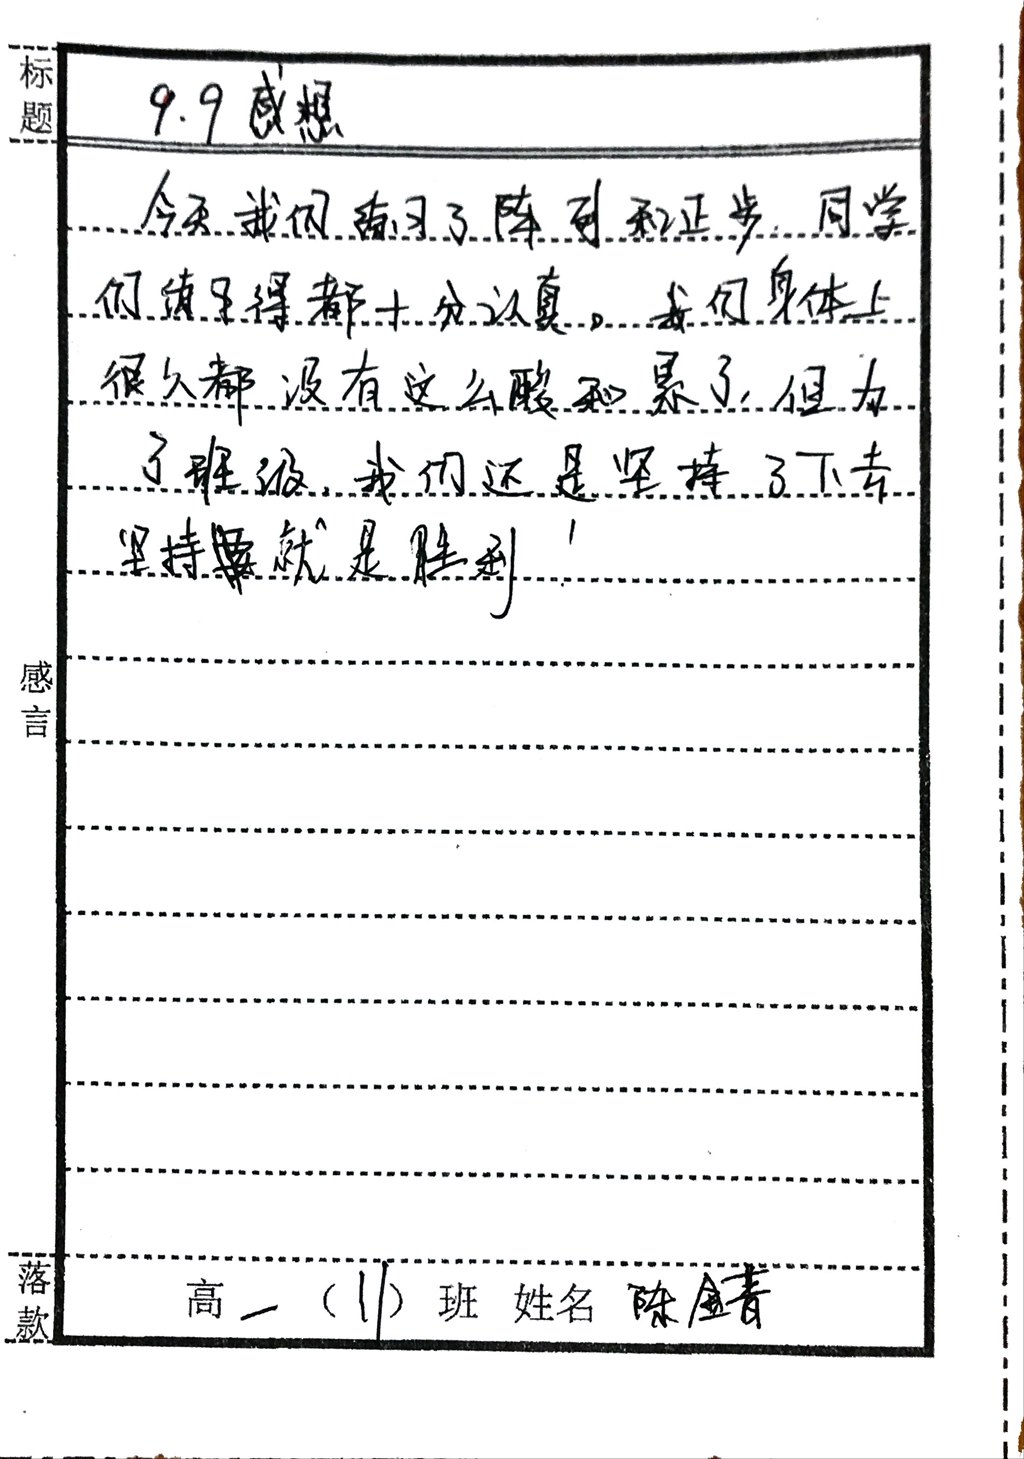 标题
9.9感想
今天我们练习了阵列和正步,同学
们练习得都十分认真。我们身体上
很久都没有这么酸和累了,但为
了班级,我们还是坚持了下去
坚持就是胜利!
感言
落款
高一(11)班 姓名 陈金青